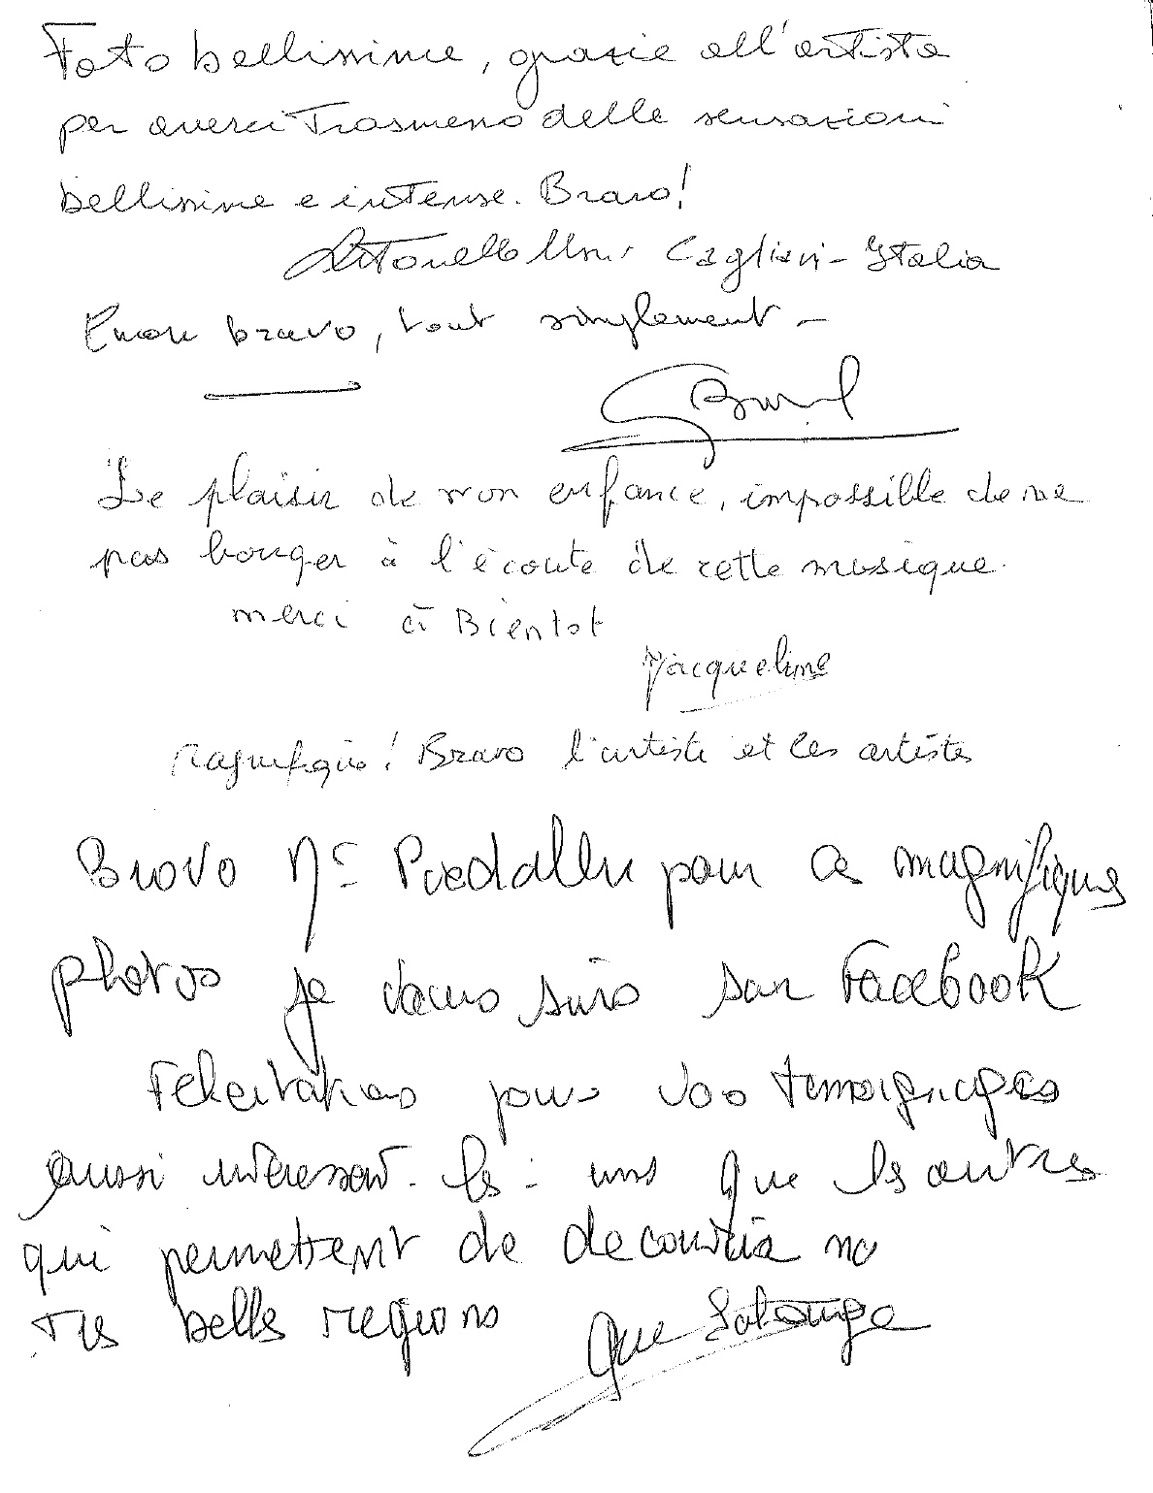 Foto bellissime, grazie all'artista
per averci Trasmesso delle sensazioni
bellissime e intense. Bravo!
Cagliari - Italia
Encore bravo, tout simplement -
Le plaisir de mon enfance, impossible de ne
pas bouger à l'écoute de cette musique.
merci à Bientot
Jacqueline
Magnifique! Bravo l'artiste et les artistes
Bravo Mr Puedallu pour ces magnifiques
photos je vous suis sur Facebook
Felicitations pour vos temoignages
aussi interessant les uns que les autres
qui permettent de decouvrir no
tres belles regions